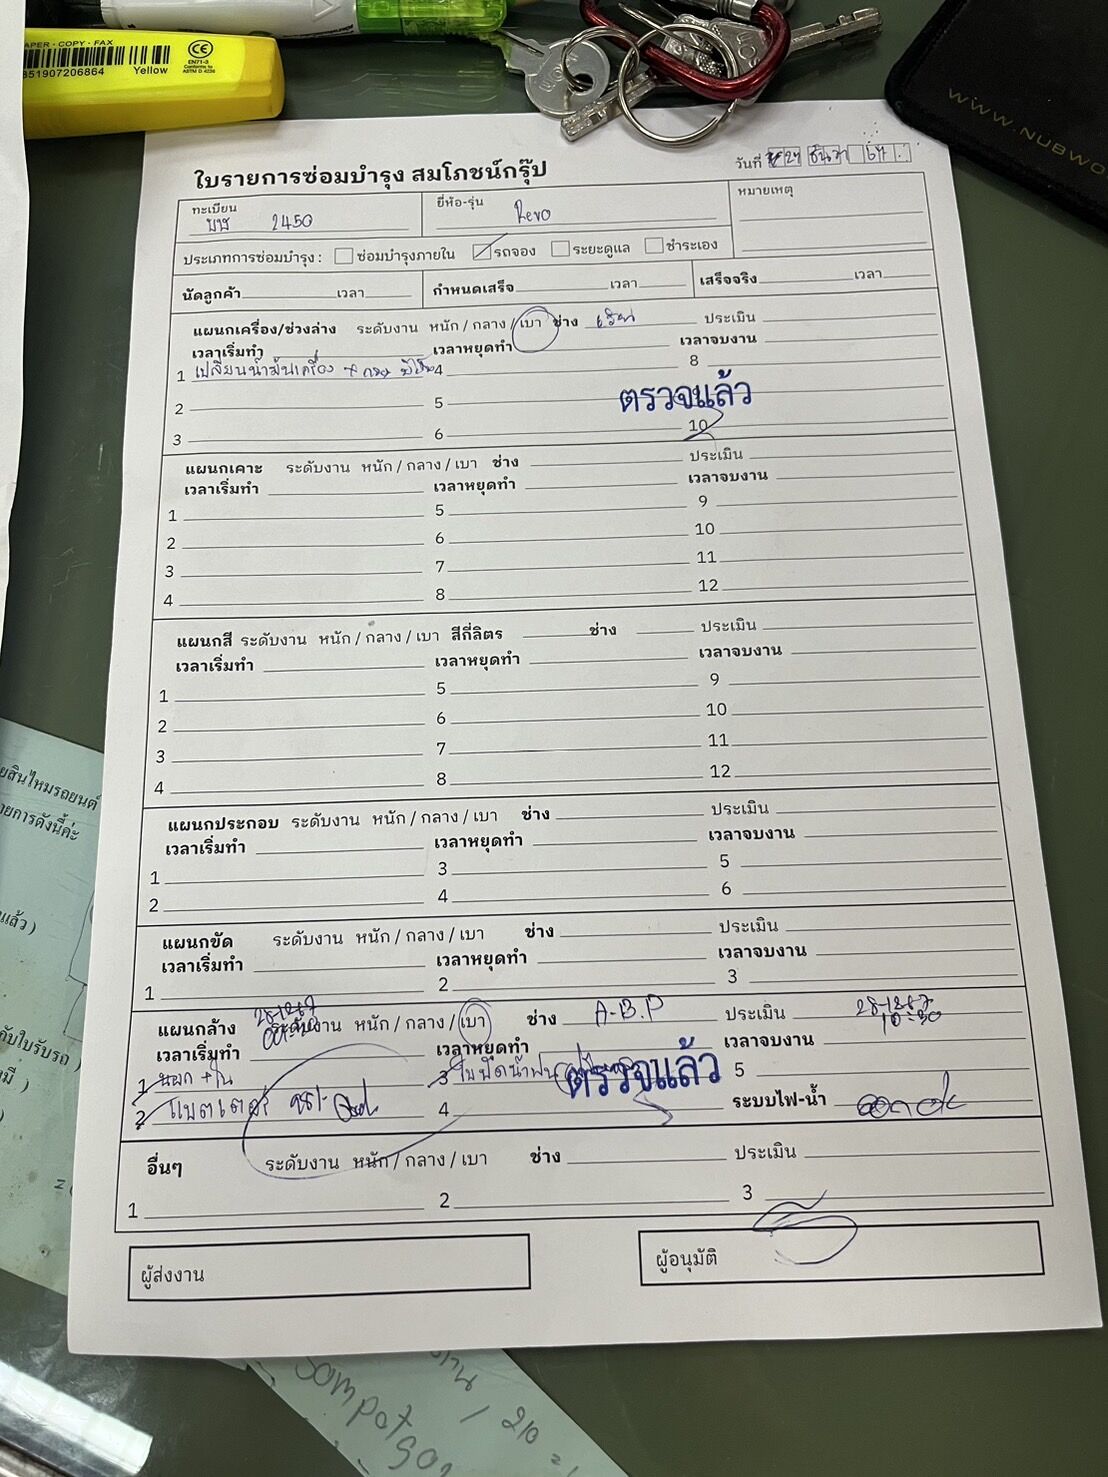 APER · COPY · FAX
851907206864
Yellow
CE
EN71-3
Conforms to
ASTM D 4236
WWW.NUBWO
ใบรายการซ่อมบำรุง สมโภชน์กรุ๊ป
วันที่ 24 ธันวา 67
ทะเบียน 2450
ยี่ห้อ-รุ่น Revo
หมายเหตุ
ประเภทการซ่อมบำรุง : ซ่อมบำรุงภายใน รถจอง ระยะดูแล ชำระเอง
นัดลูกค้า เวลา กำหนดเสร็จ เวลา เสร็จจริง เวลา
แผนกเครื่อง/ช่วงล่าง ระดับงาน หนัก / กลาง / เบา ช่าง ประเมิน
เวลาเริ่มทำ เวลาหยุดทำ เวลาจบงาน
1 เปลี่ยนน้ำมันเครื่อง + กรอง 4 8
2 5 ตรวจแล้ว
3 6 10
แผนกเคาะ ระดับงาน หนัก / กลาง / เบา ช่าง ประเมิน
เวลาเริ่มทำ เวลาหยุดทำ เวลาจบงาน
1 5 9
2 6 10
3 7 11
4 8 12
แผนกสี ระดับงาน หนัก / กลาง / เบา สีกี่ลิตร ช่าง ประเมิน
เวลาเริ่มทำ เวลาหยุดทำ เวลาจบงาน
1 5 9
2 6 10
3 7 11
4 8 12
แผนกประกอบ ระดับงาน หนัก / กลาง / เบา ช่าง ประเมิน
เวลาเริ่มทำ เวลาหยุดทำ เวลาจบงาน
1 3 5
2 4 6
แผนกขัด ระดับงาน หนัก / กลาง / เบา ช่าง ประเมิน
เวลาเริ่มทำ เวลาหยุดทำ เวลาจบงาน
1 2 3
แผนกล้าง ระดับงาน หนัก / กลาง / เบา ช่าง A-B.P ประเมิน 25-12-67
เวลาเริ่มทำ เวลาหยุดทำ เวลาจบงาน 10-30
1 นอก + ใน 3 ใบปัดน้ำฝน ตรวจแล้ว 5
2 แบตเตอรี่ 4 ระบบไฟ-น้ำ ok
อื่นๆ ระดับงาน หนัก / กลาง / เบา ช่าง ประเมิน
1 2 3
ผู้ส่งงาน
ผู้อนุมัติ
ยสินไหมรถยนต์
ายการดังนี้ค่ะ
แล้ว )
คับใบรับรถ )
มี )
Sompot
/ 210 =